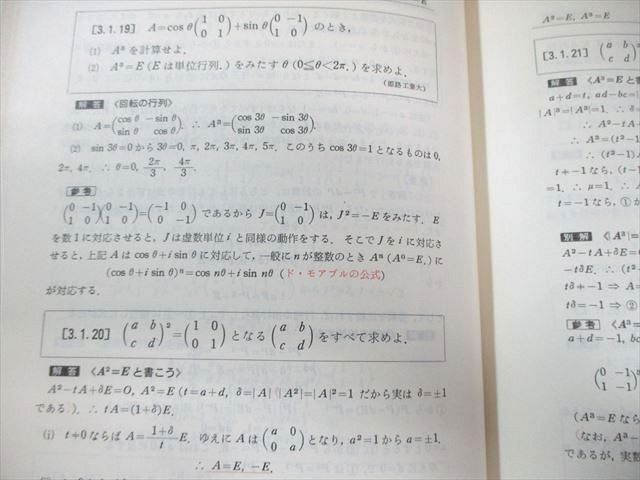 [3.1.19] A=cos θ(1 0 0 1)+sin θ(0 −1 1 0) のとき,
(1) A³ を計算せよ.
(2) A³=E(E は単位行列.)をみたす θ(0≦θ<2π.)を求めよ.
(姫路工業大)
解答 《回転の行列》
(1) A=(cos θ −sin θ sin θ cos θ). ∴ A³=(cos 3θ −sin 3θ sin 3θ cos 3θ).
(2) sin 3θ=0 から 3θ=0, π, 2π, 3π, 4π, 5π. このうち cos 3θ=1 となるものは 0,
2π, 4π. ∴ θ=0, 2π/3, 4π/3.
参考
(0 −1 1 0)(0 −1 1 0)=(−1 0 0 −1) であるから J=(0 −1 1 0) は, J²=−E をみたす. E
を数1に対応させると, J は虚数単位 i と同様の動作をする. そこで J を i に対応さ
せると, 上記 A は cos θ+i sin θ に対応して, 一般に n が整数のとき Aⁿ (A⁰=E.) に
(cos θ+i sin θ)ⁿ=cos nθ+i sin nθ (ド・モアブルの公式)
が対応する.
[3.1.20] (a b c d)²=(1 0 0 1) となる (a b c d) をすべて求めよ.
解答 《A²=E と書こう》
A²−tA+δE=O, A²=E (t=a+d, δ=|A| |A²|=|A|²=1 だから実は δ=±1
である.). ∴ tA=(1+δ)E.
(i) t≠0 ならば A=1+δ/t E. ゆえに A は (a 0 0 a) となり, a²=1 から a=±1.
∴ A=E, −E.
A²=E, A³=E
[3.1.21] (a b c d)
解答 《A³=E と書
a+d=t, ad−bc=
|A|³=|A³|=1. ∴ δ=
∴ A²−tA+
∴ A³=(t²−1
∴ (t²−1)
t≠−1 なら, (t
=1. ∴ μ=1. ∴
t=−1 なら, ①か
別解 《|A³=
A²−tA+δE=O
−tδE. ∴ (t²
tδ≠−1 ⇒ A
tδ=−1 ⇒ ②
参考 《A³=
a+d=−1, bc
(A=E なら
(なお, A³−
であるが, 実数